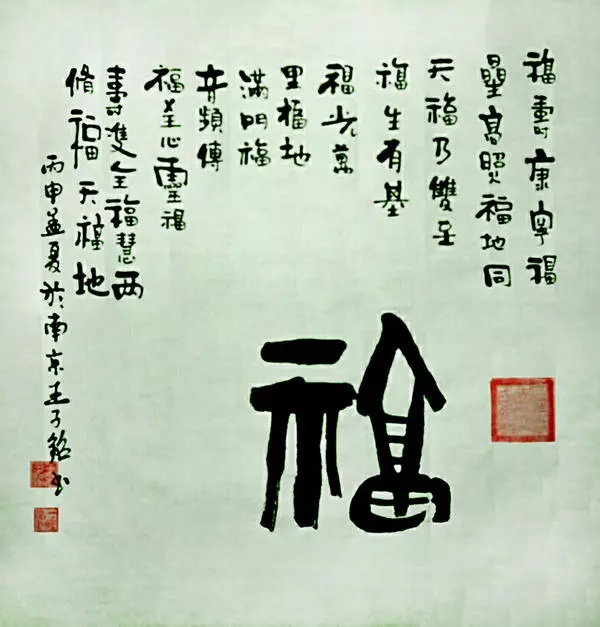 福壽康寧福
星高照福地同
天福乃雙至
福生有基
福光萬
里福地
滿門福
音頻傳
福至心靈福
壽雙全福慧两
脩福天福地
丙申孟夏於南京王子銘书
福